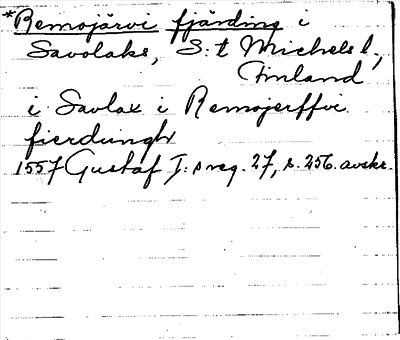 *Remojärvi fjärding i
Savolaks, S:t Michels l.,
Finland
i Savlax i Remojerffvi
fierdungh
1557 Gustaf I:s reg. 27, s. 256. avskr.